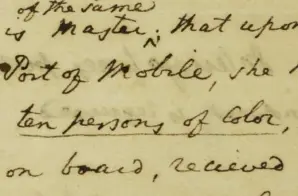 of the same
is Master; that upon
Port of Mobile, she
ten persons of Color,
on board, recieved